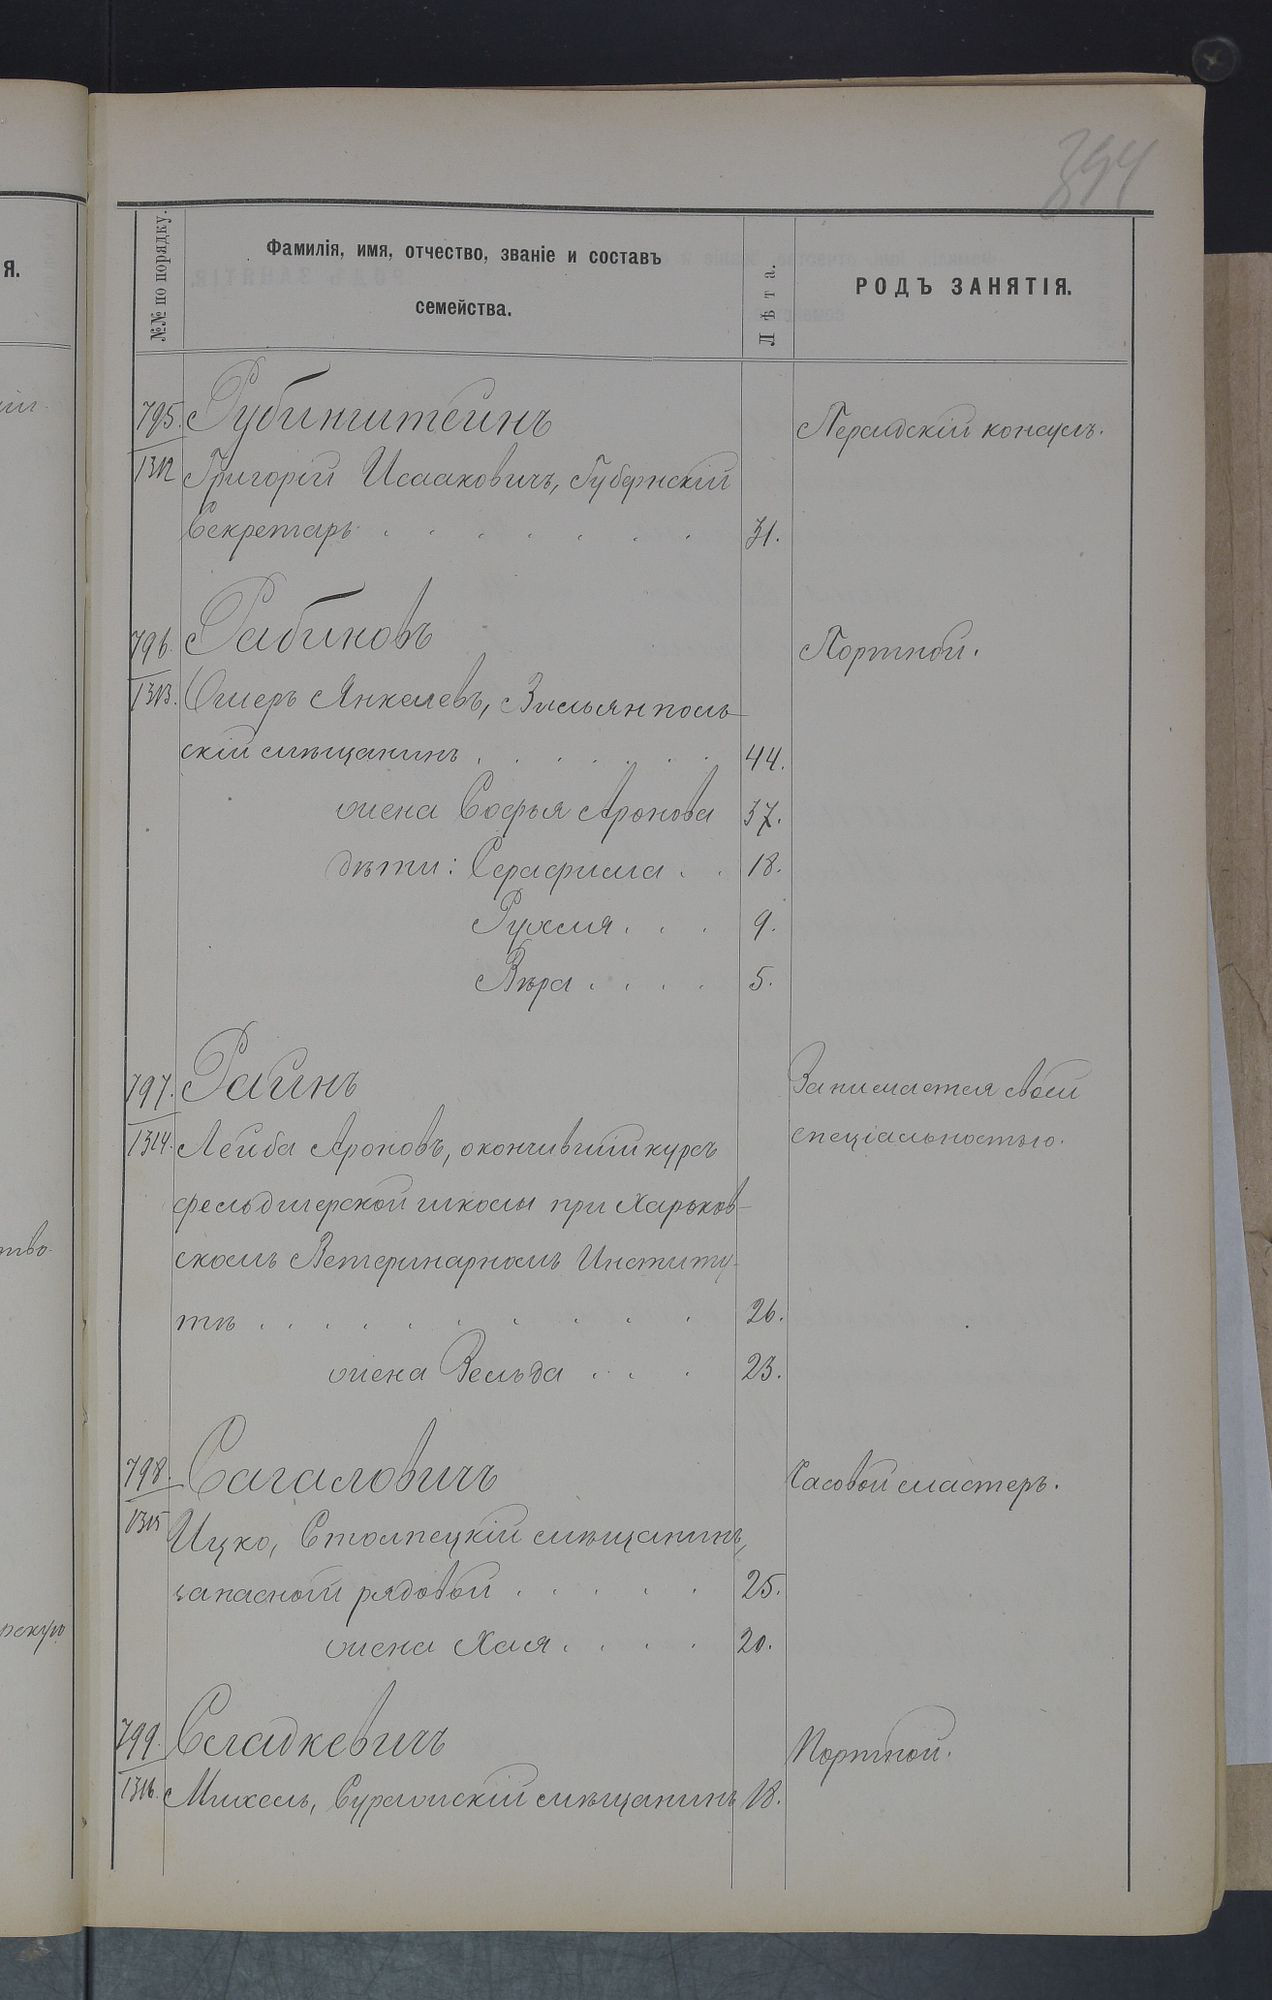 394
№№ по порядку.
Фамилія, имя, отчество, званіе и составъ
семейства.
Лѣта.
РОДЪ ЗАНЯТІЯ.
Я.
795. Рубинштейнъ
Персидскій консулъ.
1312 Григорій Исааковичъ, Губернскій
Секретарь . . . . . . . 31.
796. Рабиновъ
Портной.
1313. Ошеръ Янкелевъ, Вильянполь-
скій мѣщанинъ . . . . . . . 44.
жена Софья Аронова 37.
дѣти: Серафима . . 18.
Рухля . . . 9.
Вѣра . . . . 5.
797. Райнъ
Занимается своей
1314. Лейба Ароновъ, окончившій курсъ
спеціальностью.
фельдшерской школы при Харьков-
скомъ Ветеринарномъ Институ-
тѣ . . . . . . . . . . 26.
жена Зельда . . . 23.
798. Сагаловичъ
Часовой мастеръ.
1315 Ицко, Столпецкій мѣщанинъ,
запасной рядовой . . . . . 25.
жена Хая . . . . 20.
799. Сладкевичъ
Портной.
1316. Михель, Суражскій мѣщанинъ 18.